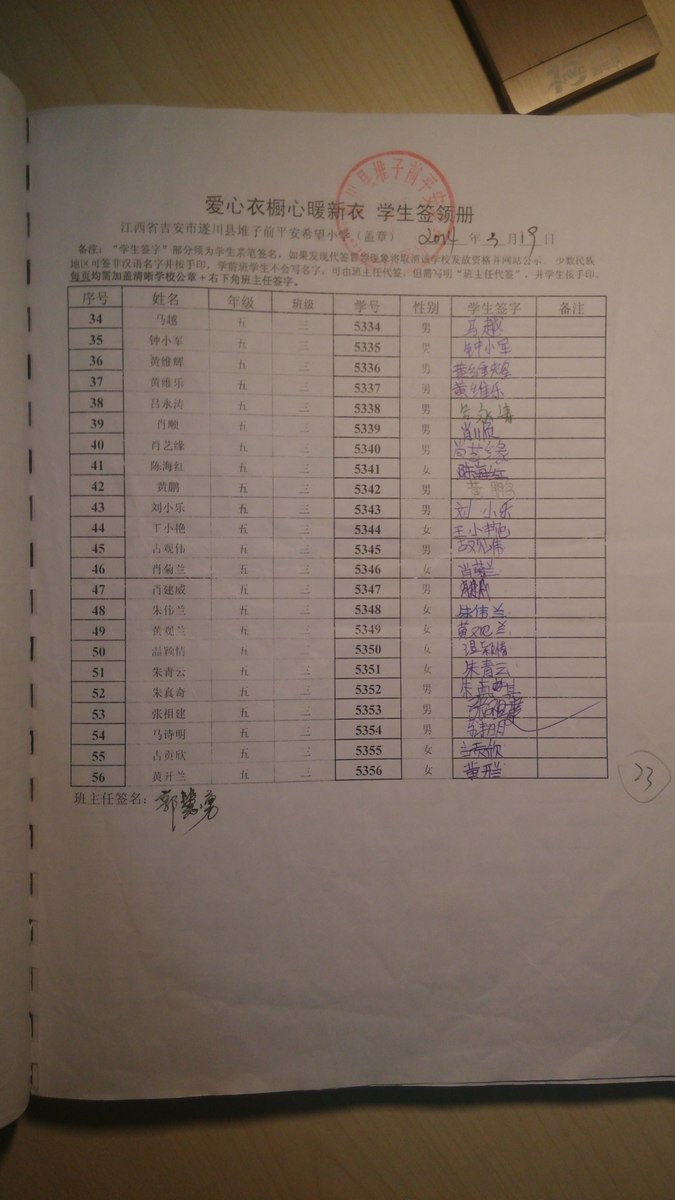 爱心衣橱心暖新衣 学生签领册
江西省吉安市遂川县堆子前平安希望小学（盖章） 2014 年 3 月 19 日
备注：“学生签字”部分须为学生亲笔签名，如果发现代签冒签现象将取消该学校发放资格并网站公示。少数民族
地区可签非汉语名字并按手印，学前班学生不会写名字，可由班主任代签，但需写明“班主任代签”，并学生按手印。
每页均需加盖清晰学校公章＋右下角班主任签字。
序号 姓名 年级 班级 学号 性别 学生签字 备注
34 马越 五 三 5334 男 马越
35 钟小军 五 三 5335 男 钟小军
36 黄维辉 五 三 5336 男 黄维辉
37 黄维乐 五 三 5337 男 黄维乐
38 吕永涛 五 三 5338 男 吕永涛
39 肖顺 五 三 5339 男 肖顺
40 肖艺缘 五 三 5340 男 肖艺缘
41 陈海红 五 三 5341 女 陈海红
42 黄鹏 五 三 5342 男 黄鹏
43 刘小乐 五 三 5343 男 刘小乐
44 王小艳 五 三 5344 女 王小艳
45 古观伟 五 三 5345 男 古观伟
46 肖菊兰 五 三 5346 女 肖菊兰
47 肖建威 五 三 5347 男
48 朱伟兰 五 三 5348 女 朱伟兰
49 黄观兰 五 三 5349 女 黄观兰
50 温颖情 五 三 5350 女 温颖情
51 朱青云 五 三 5351 女 朱青云
52 朱真奇 五 三 5352 男 朱真奇
53 张祖建 五 三 5353 男 张祖建
54 马诗明 五 三 5354 男
55 古贡欣 五 三 5355 女 古贡欣
56 黄开兰 五 三 5356 女 黄开兰
23
班主任签名：郭慧勇